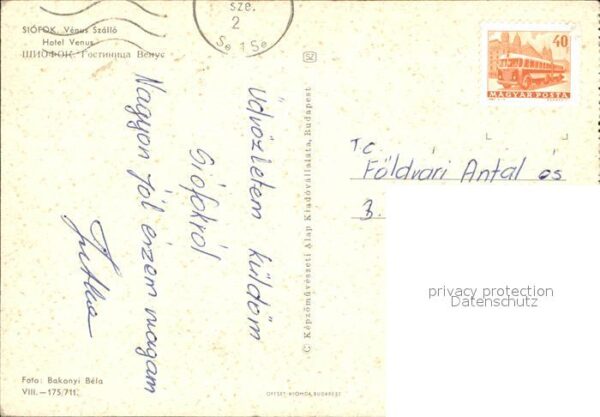 SIÓFOK. Vénus Szálló
Hotel Venus
ШИОФОК. Гостиница Венус
sze.
2
40
MAGYAR POSTA
Üdvözletem küldöm
Siófokról
Nagyon jól érzem magam
Jutka
C Képzőművészeti Alap Kiadóvállalata, Budapest
T.C.
Földvári Antal és
3.
privacy protection
Datenschutz
Foto: Bakonyi Béla
VIII.—175/711.
OFFSET-NYOMDA, BUDAPEST